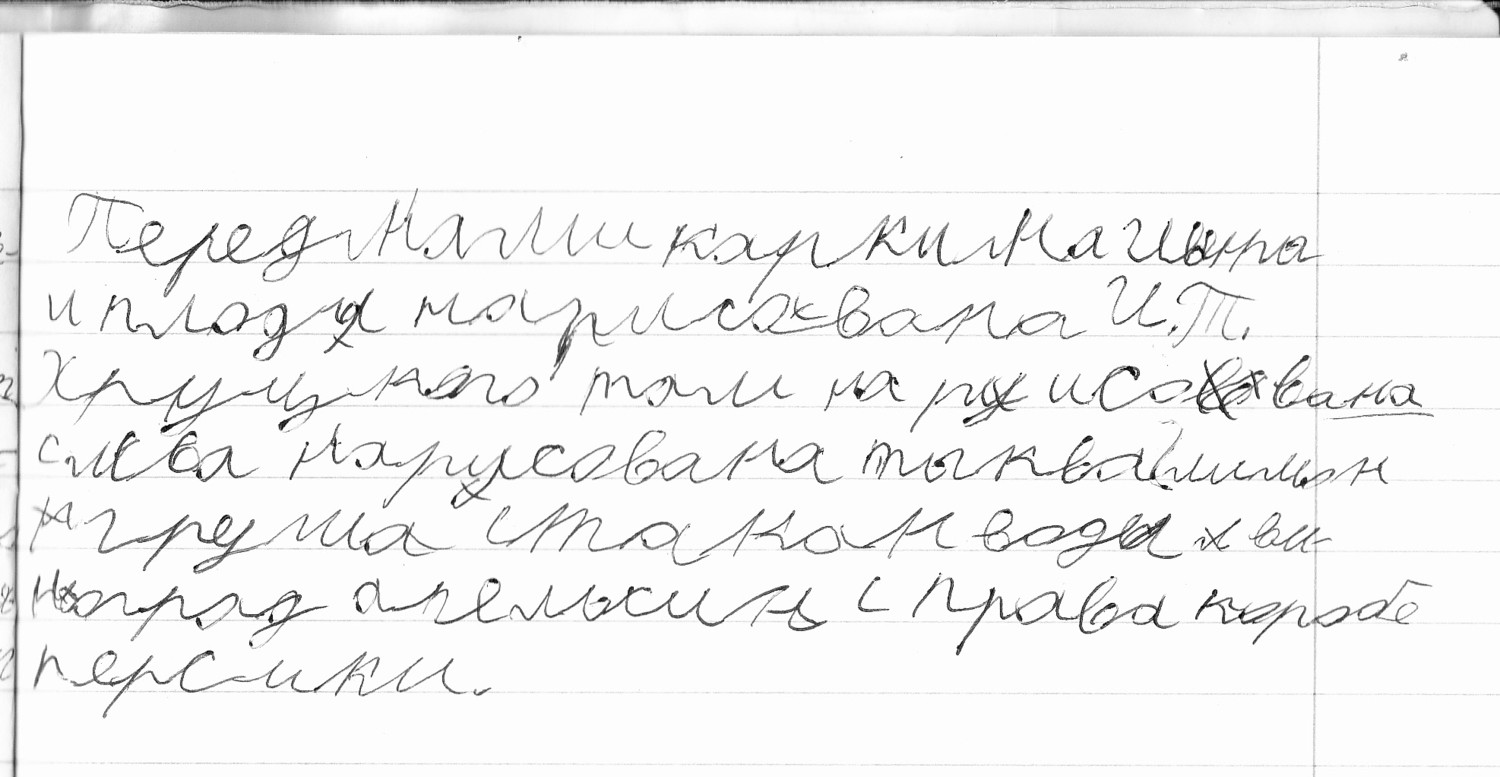 Перед нами каркина цынра
и плоды нарисавана И.Т.
Хруцкого там на рисавана
слева нарисована тыква лимон
груша стакан воды ви
наград апельсин с права коробе
персики.